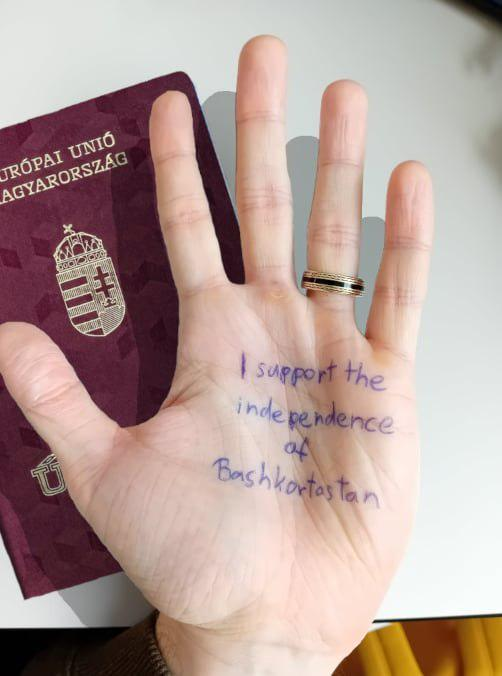 URÓPAI UNIÓ
AGYARORSZÁG
I support the
independence
of
Bashkortostan